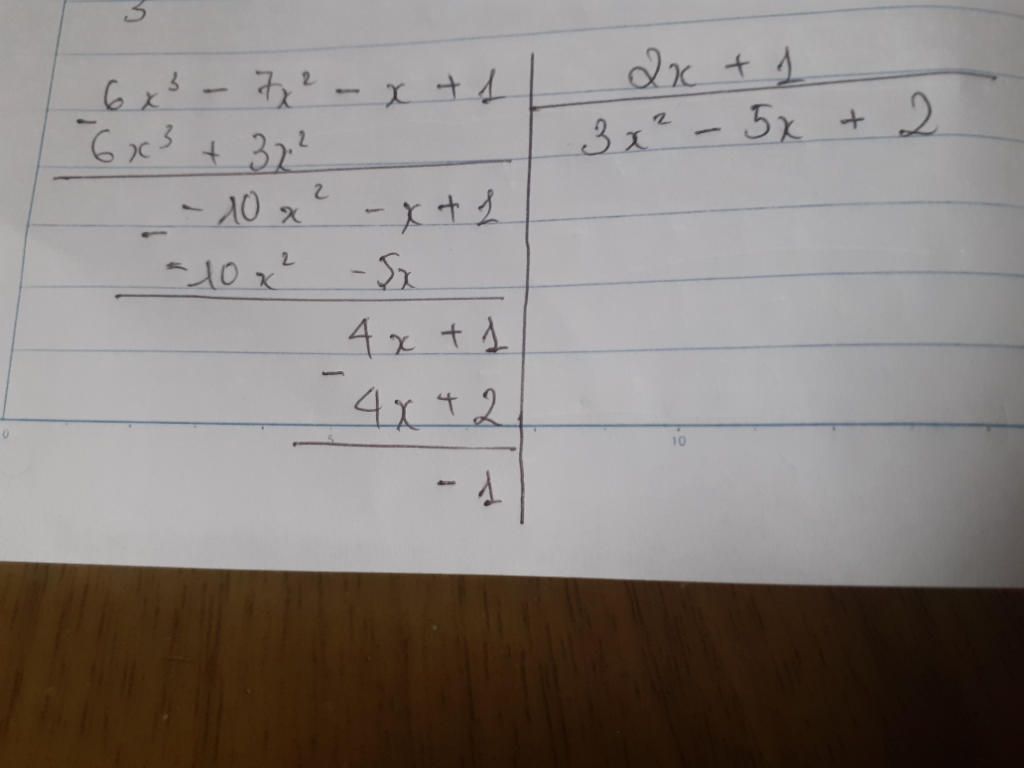 3
6x³ - 7x² - x + 1 | 2x + 1
- 6x³ + 3x² | 3x² - 5x + 2
-10x² - x + 1
- -10x² - 5x
4x + 1
- 4x + 2
- 1
0 5 10